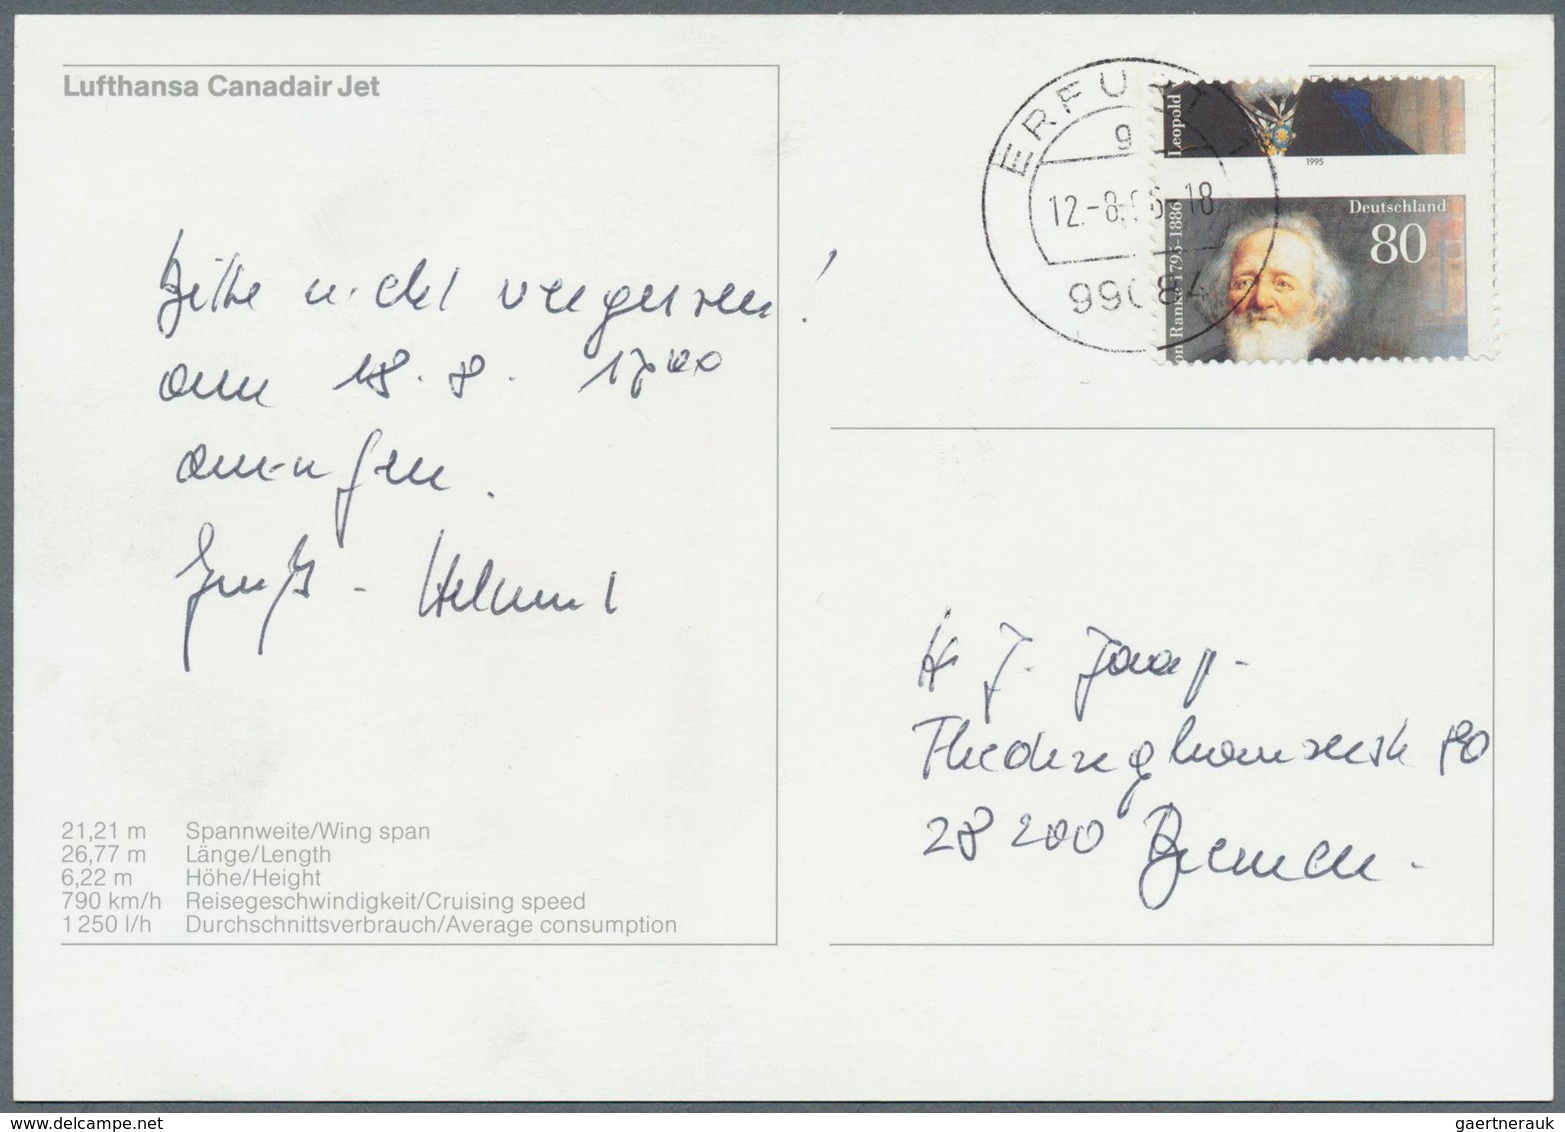 Lufthansa Canadair Jet
ERFURT
12.-8. 18
99084
Leopold
1995
von Ranke 1795-1886
Deutschland
80
Bitte nicht vergessen!
am 18.8. 17 00
anrufen.
Gruß - Helmut
H J.
80
28 200 Bremen.
21,21 m Spannweite/Wing span
26,77 m Länge/Length
6,22 m Höhe/Height
790 km/h Reisegeschwindigkeit/Cruising speed
1 250 l/h Durchschnittsverbrauch/Average consumption
www.delcampe.net
gaertnerauk